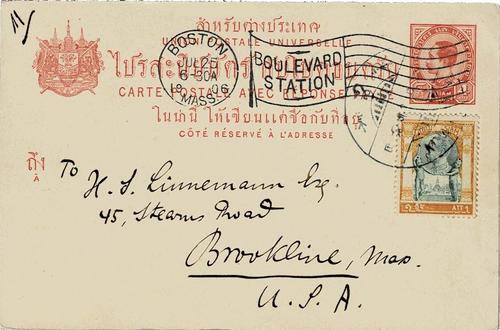 11/
สำหรับต่างประเทศ
UNION POSTALE UNIVERSELLE
ไปรสะนียบัตร
CARTE POSTALE AVEC RÉPONSE PAYÉE
ในน่านี้ ให้เขียนแต่ชื่อกับที่อยู่
CÔTÉ RÉSERVÉ À L'ADRESSE
BOSTON
JUL 25
6-30A
'06
MASS.
BOULEVARD
STATION
ถึง
A
To H. S. Linnemann Esq.
45, Stearns Road
Brookline, Mass.
U. S. A.
ATT. 1